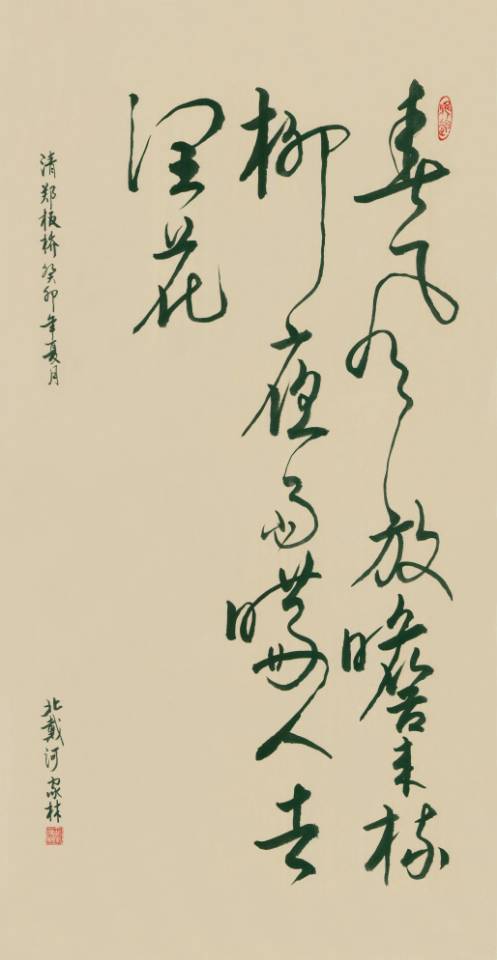 春风放膽来梳
柳夜雨瞒人去
润花
清郑板桥癸卯年夏月
北戴河家林